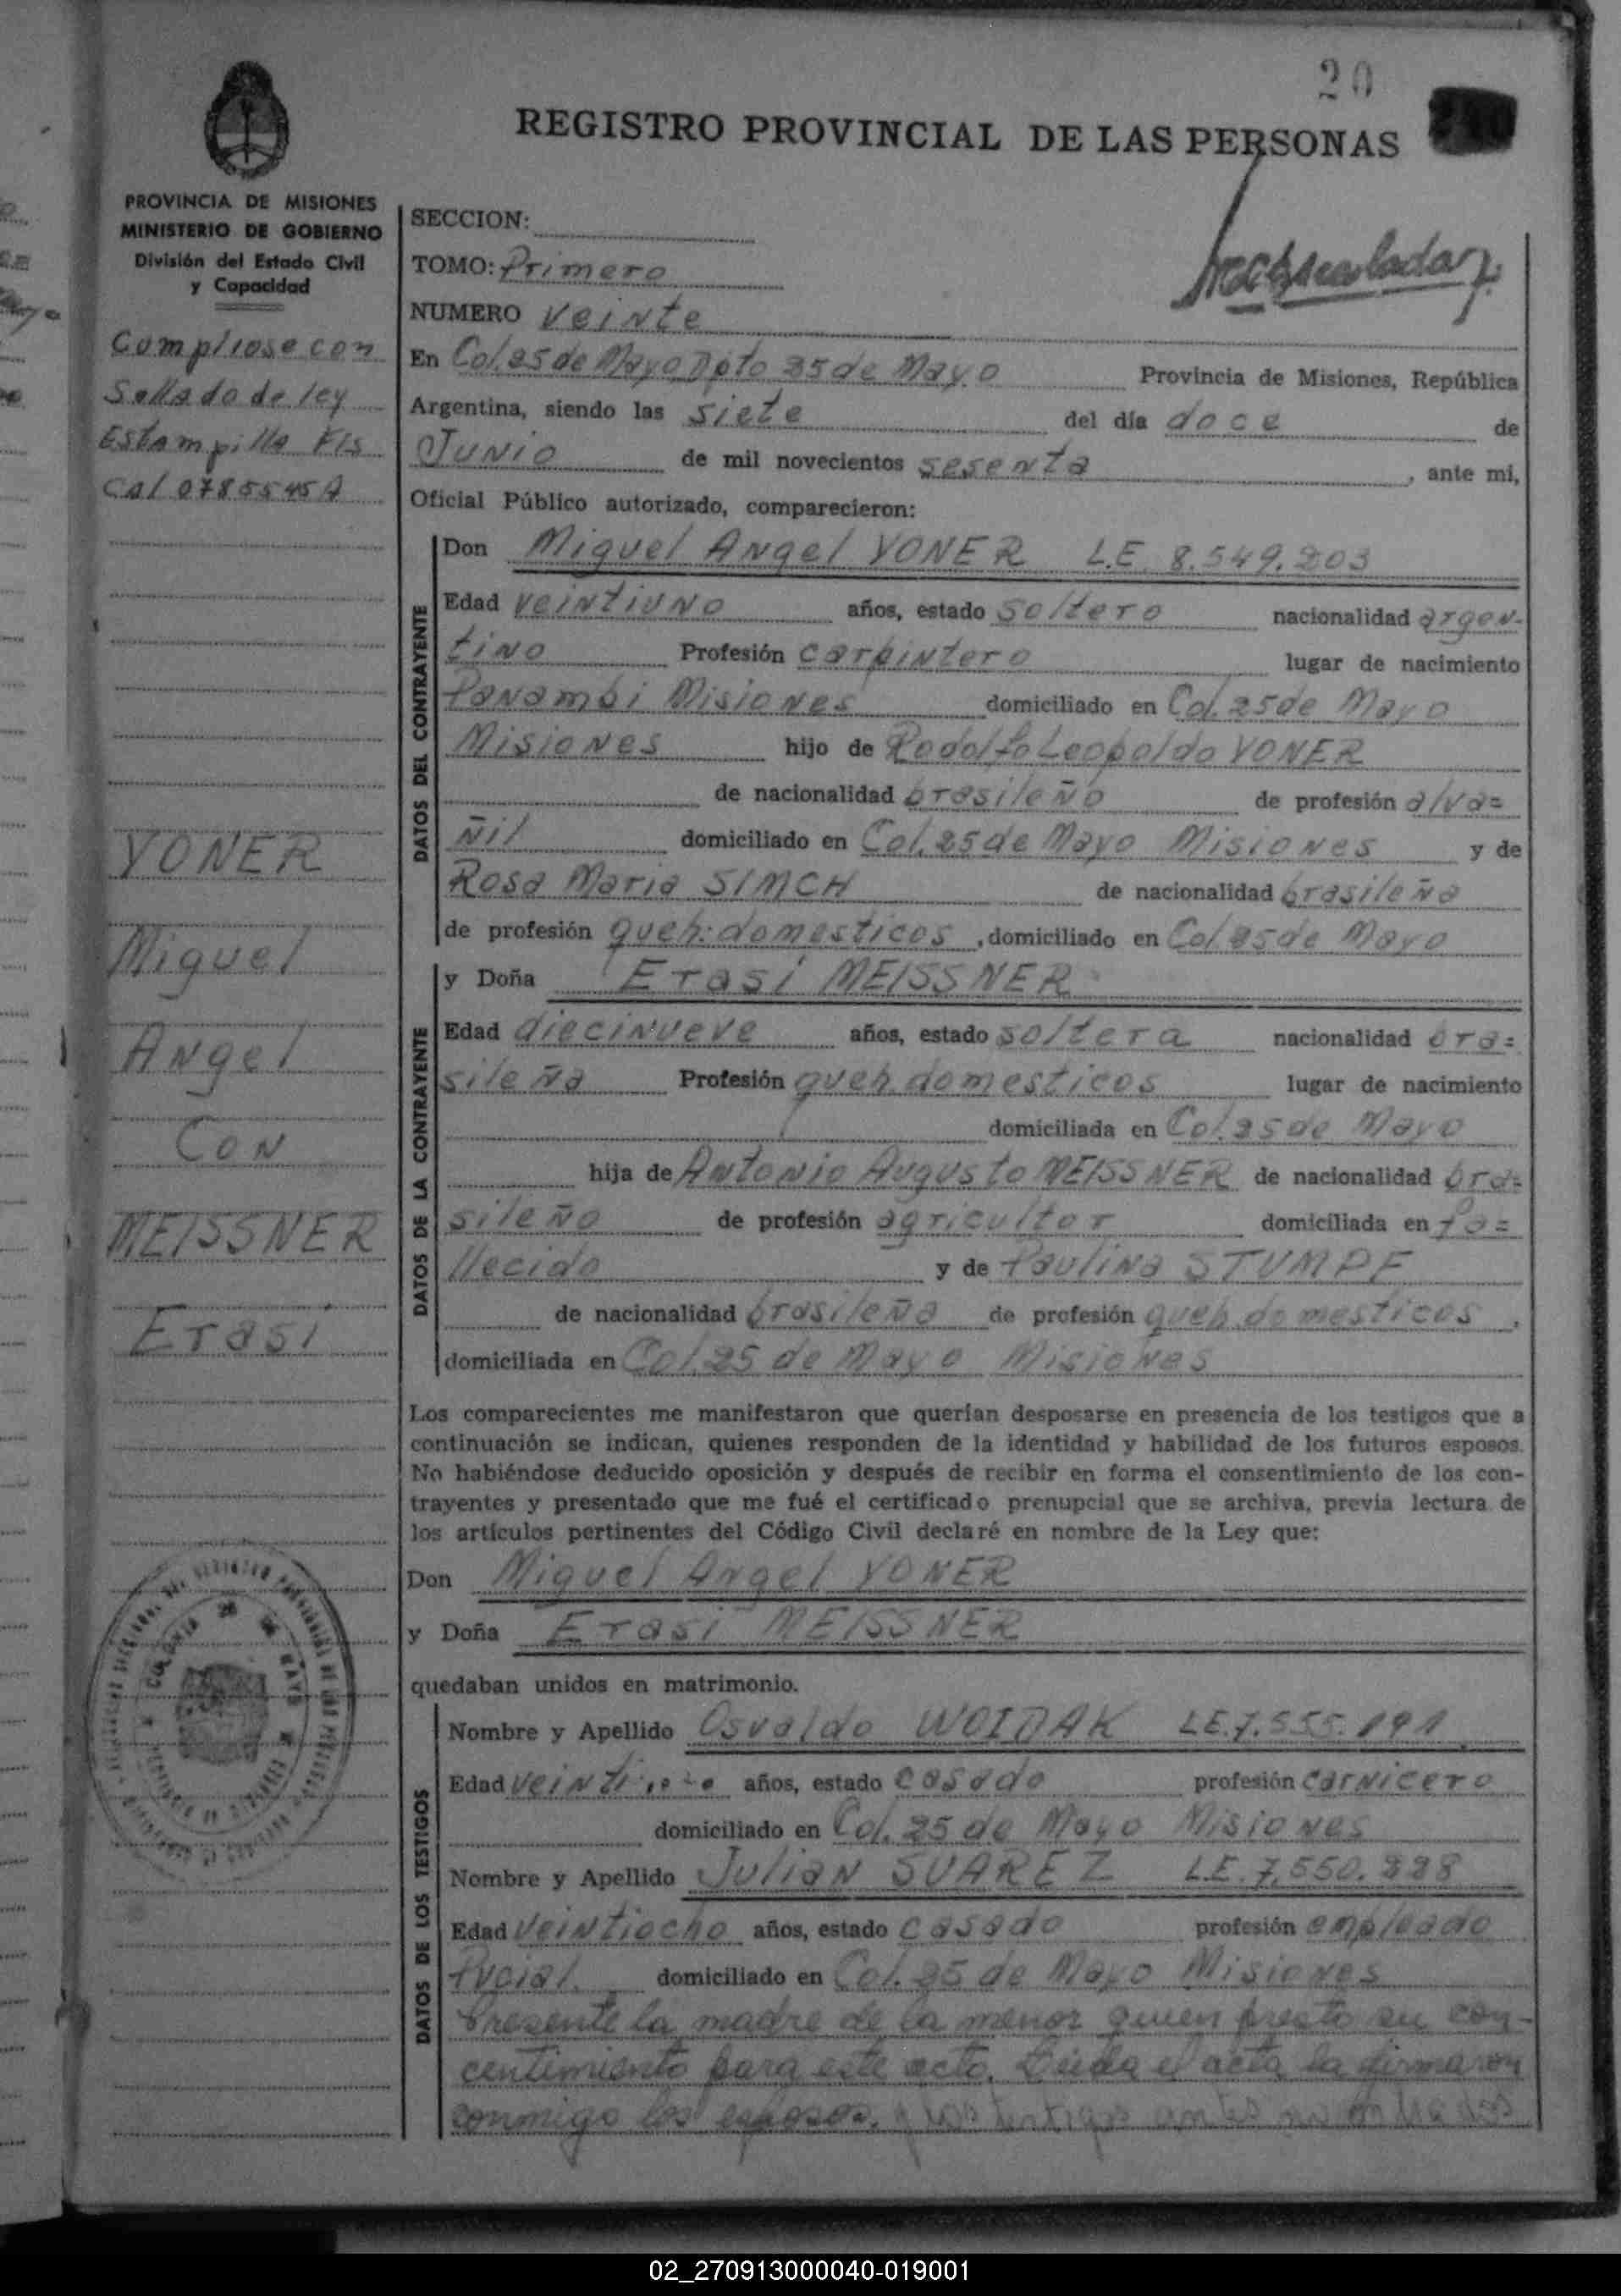 20
REGISTRO PROVINCIAL DE LAS PERSONAS
PROVINCIA DE MISIONES
MINISTERIO DE GOBIERNO
División del Estado Civil
y Capacidad
Compliose con
Sellado de ley
Estampilla Fis
cal 0785545A
YONER
Miguel
Angel
Con
MEISSNER
Erasi
SECCION:
TOMO: Primero
NUMERO veinte
En Col. 25 de Mayo Dpto 25 de Mayo Provincia de Misiones, República
Argentina, siendo las siete del día doce de
Junio de mil novecientos sesenta, ante mi,
Oficial Público autorizado, comparecieron:
DATOS DEL CONTRAYENTE
Don Miguel Angel YONER L.E. 8.549.203
Edad veintiuno años, estado soltero nacionalidad argen-
tino Profesión carpintero lugar de nacimiento
Panambi Misiones domiciliado en Col. 25 de Mayo
Misiones hijo de Rodolfo Leopoldo YONER
de nacionalidad brasileño de profesión alva=
ñil domiciliado en Col. 25 de Mayo Misiones y de
Rosa Maria SIMCH de nacionalidad brasileña
de profesión queh: domesticos, domiciliado en Col 25 de Mayo
DATOS DE LA CONTRAYENTE
y Doña Erasi MEISSNER
Edad diecinueve años, estado soltera nacionalidad bra=
sileña Profesión queh domesticos lugar de nacimiento
domiciliada en Col. 25 de Mayo
hija de Antonio Augusto MEISSNER de nacionalidad bra=
sileño de profesión agricultor domiciliada en fa=
llecido y de Paulina STUMPF
de nacionalidad brasileña de profesión queh domesticos,
domiciliada en Col. 25 de Mayo Misiones
Los comparecientes me manifestaron que querían desposarse en presencia de los testigos que a
continuación se indican, quienes responden de la identidad y habilidad de los futuros esposos.
No habiéndose deducido oposición y después de recibir en forma el consentimiento de los con-
trayentes y presentado que me fué el certificado prenupcial que se archiva, previa lectura de
los artículos pertinentes del Código Civil declaré en nombre de la Ley que:
Don Miguel Angel YONER
y Doña Erasi MEISSNER
quedaban unidos en matrimonio.
DATOS DE LOS TESTIGOS
Nombre y Apellido Osvaldo WOIDAK L.E. 7.555.191
Edad años, estado casado profesión carnicero
domiciliado en Col. 25 de Mayo Misiones
Nombre y Apellido Julian SUAREZ L.E. 7.550.228
Edad veintiocho años, estado casado profesión empleado
Pvcial. domiciliado en Col. 25 de Mayo Misiones
Presente la madre de la menor quien presto su con-
centimiento para este acto. Leida el acta la firmaron
conmigo los esposos. y los testigos antes
02_270913000040-019001